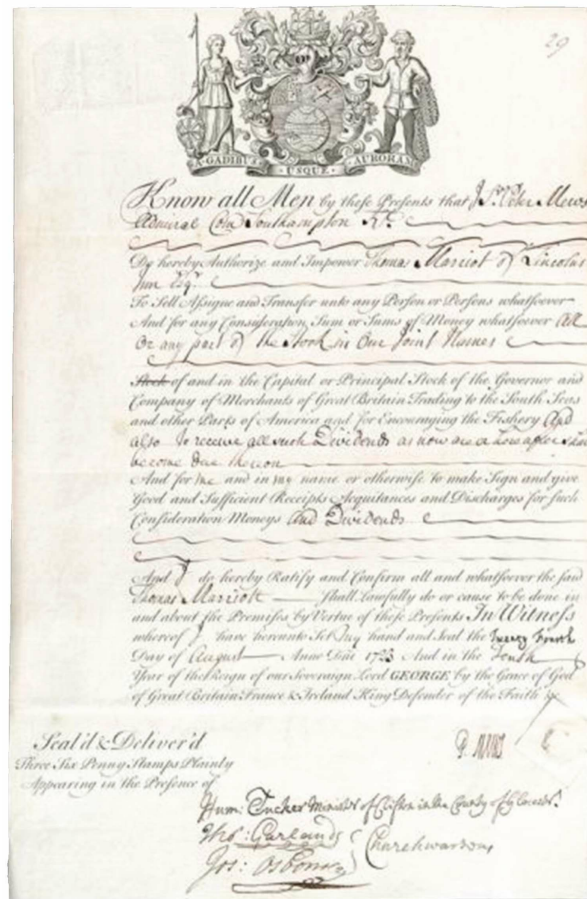 29
A GADIBUS USQUE AURORAM
Know all Men by these Presents that I Sr. Peter Mews
Com Southampton Kt.
Do hereby Authorize and Impower Thomas Marriot of Lincolns
Inn Esqr.
To Sell Assigne and Transfer unto any Person or Persons whatsoever
And for any Consideration Sum or Sums of Money whatsoever All
Or any part of the Stock in Our Joint Names
Stock of and in the Capital or Principal Stock of the Governor and
Company of Merchants of Great Britain Trading to the South Seas
and other Parts of America and for Encouraging the Fishery And
also to receive all such Dividends as now are or hereafter shall
become due thereon
And for me and in my name or otherwise to make Sign and give
Good and Sufficient Receipts Acquitances and Discharges for such
Consideration Moneys And Dividends
And I do hereby Ratify and Confirm all and whatsoever the said
Thomas Marriott Shall lawfully do or cause to be done in
and about the Premisses by Vertue of these Presents In Witness
whereof I have hereunto Set my hand and Seal the Twenty Fourth
Day of August Anno Dni 1723 And in the Tenth
Year of the Reign of our Sovereign Lord GEORGE by the Grace of God
of Great Britain France & Ireland King Defender of the Faith &c
Seal'd & Deliver'd
Three Six Penny Stamps Plainly
Appearing in the Presence of
P. Mews
Hum: Tucker Minister of Clifton in the County of Glocester
Tho: Garland
Churchwardens
Jos: Osborne